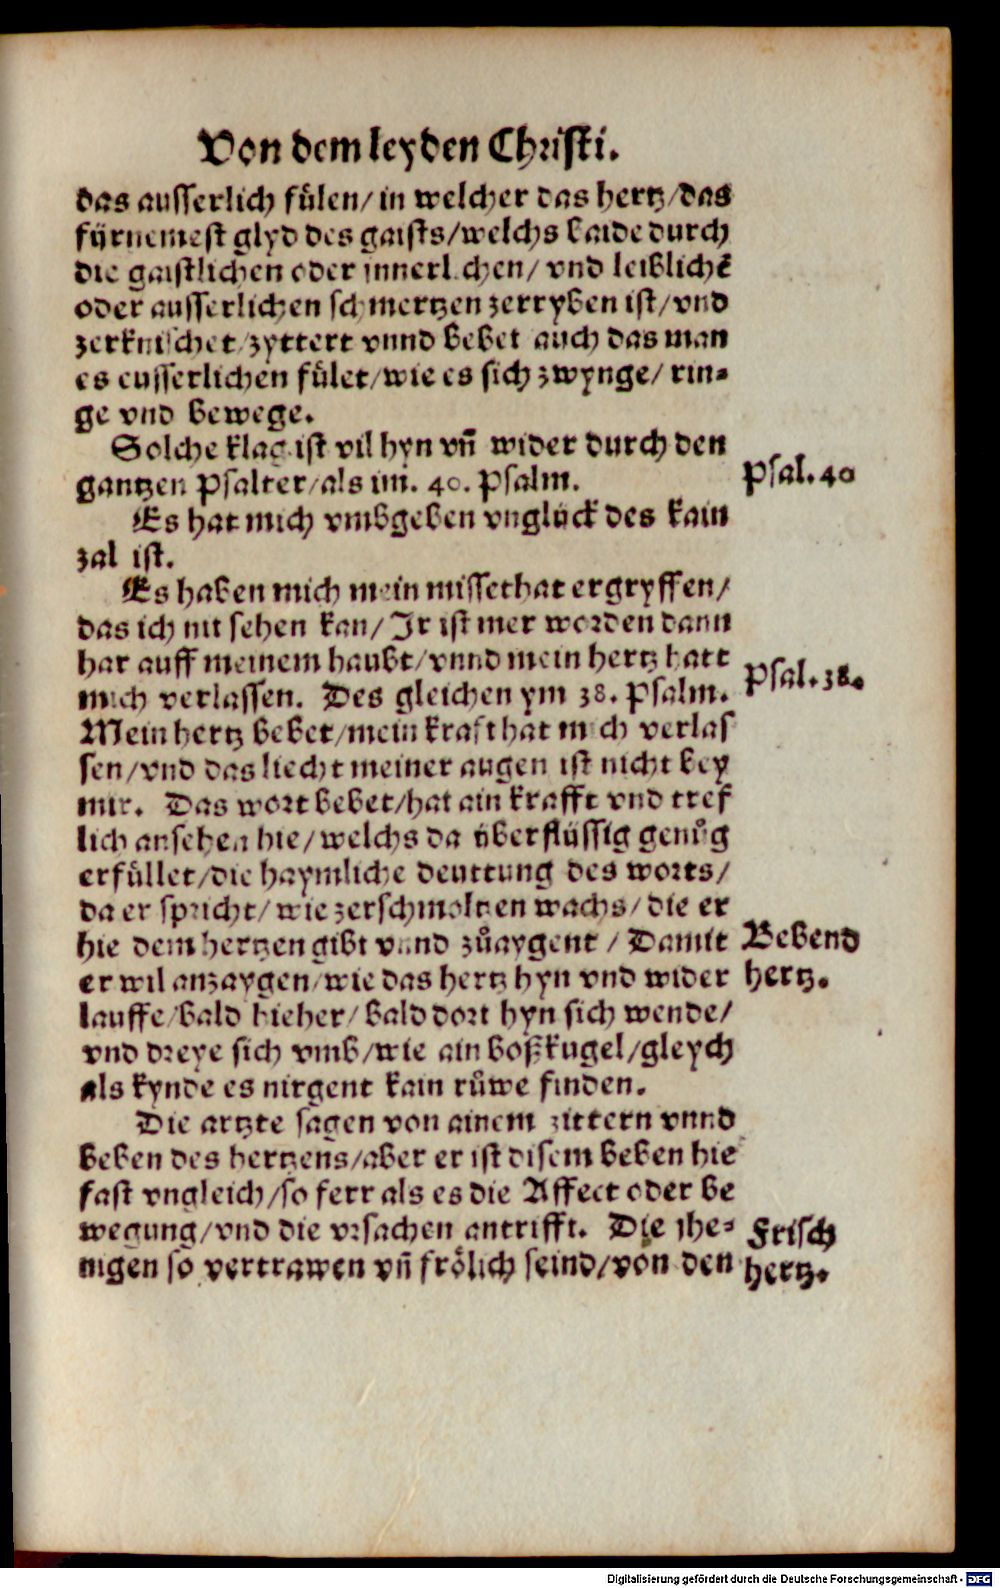 Von dem leyden Christi.
das ausserlich fülen/ in welcher das hertz/das
fürnemest glyd des gaists/welchs baide durch
die gaistlichen oder innerlichen/ vnd leiblichē
oder ausserlichen schmertzen zerryben ist/vnd
zerknischet/zyttert vnnd bebet auch das man
es eusserlichen fület/wie es sich zwynge/ rin-
ge vnd bewege.
Solche klag ist vil hyn vn̄ wider durch den
gantzen Psalter/als im. 40. Psalm.
Psal. 40
Es hat mich vmbgeben vnglück des kain
zal ist.
Es haben mich mein missethat ergryffen/
das ich nit sehen kan/ Jr ist mer worden dann
har auff meinem haubt/vnnd mein hertz hatt
mich verlassen. Des gleichen ym 38. Psalm.
Psal. 38.
Mein hertz bebet/mein kraft hat mich verlas
sen/vnd das liecht meiner augen ist nicht bey
mir. Das wort bebet/hat ain krafft vnd tref
lich ansehen hie/welchs da überflüssig genůg
erfüllet/die haymliche deuttung des worts/
da er spricht/ wie zerschmoltzen wachs/ die er
hie dem hertzen gibt vnnd zůaygent / Damit
Bebend
er wil anzaygen/wie das hertz hyn vnd wider
hertz.
lauffe/bald hieher/ bald dort hyn sich wende/
vnd dreye sich vmb/wie ain boßkugel/gleych
als kynde es nirgent kain růwe finden.
Die artzte sagen von ainem zittern vnnd
beben des hertzens/aber er ist disem beben hie
fast vngleich/so ferr als es die Affect oder be
wegung/vnd die vrsachen antrifft. Die jhe-
Frisch
nigen so vertrawen vn̄ frölich seind/von den
hertz.
Digitalisierung gefördert durch die Deutsche Forschungsgemeinschaft - DFG